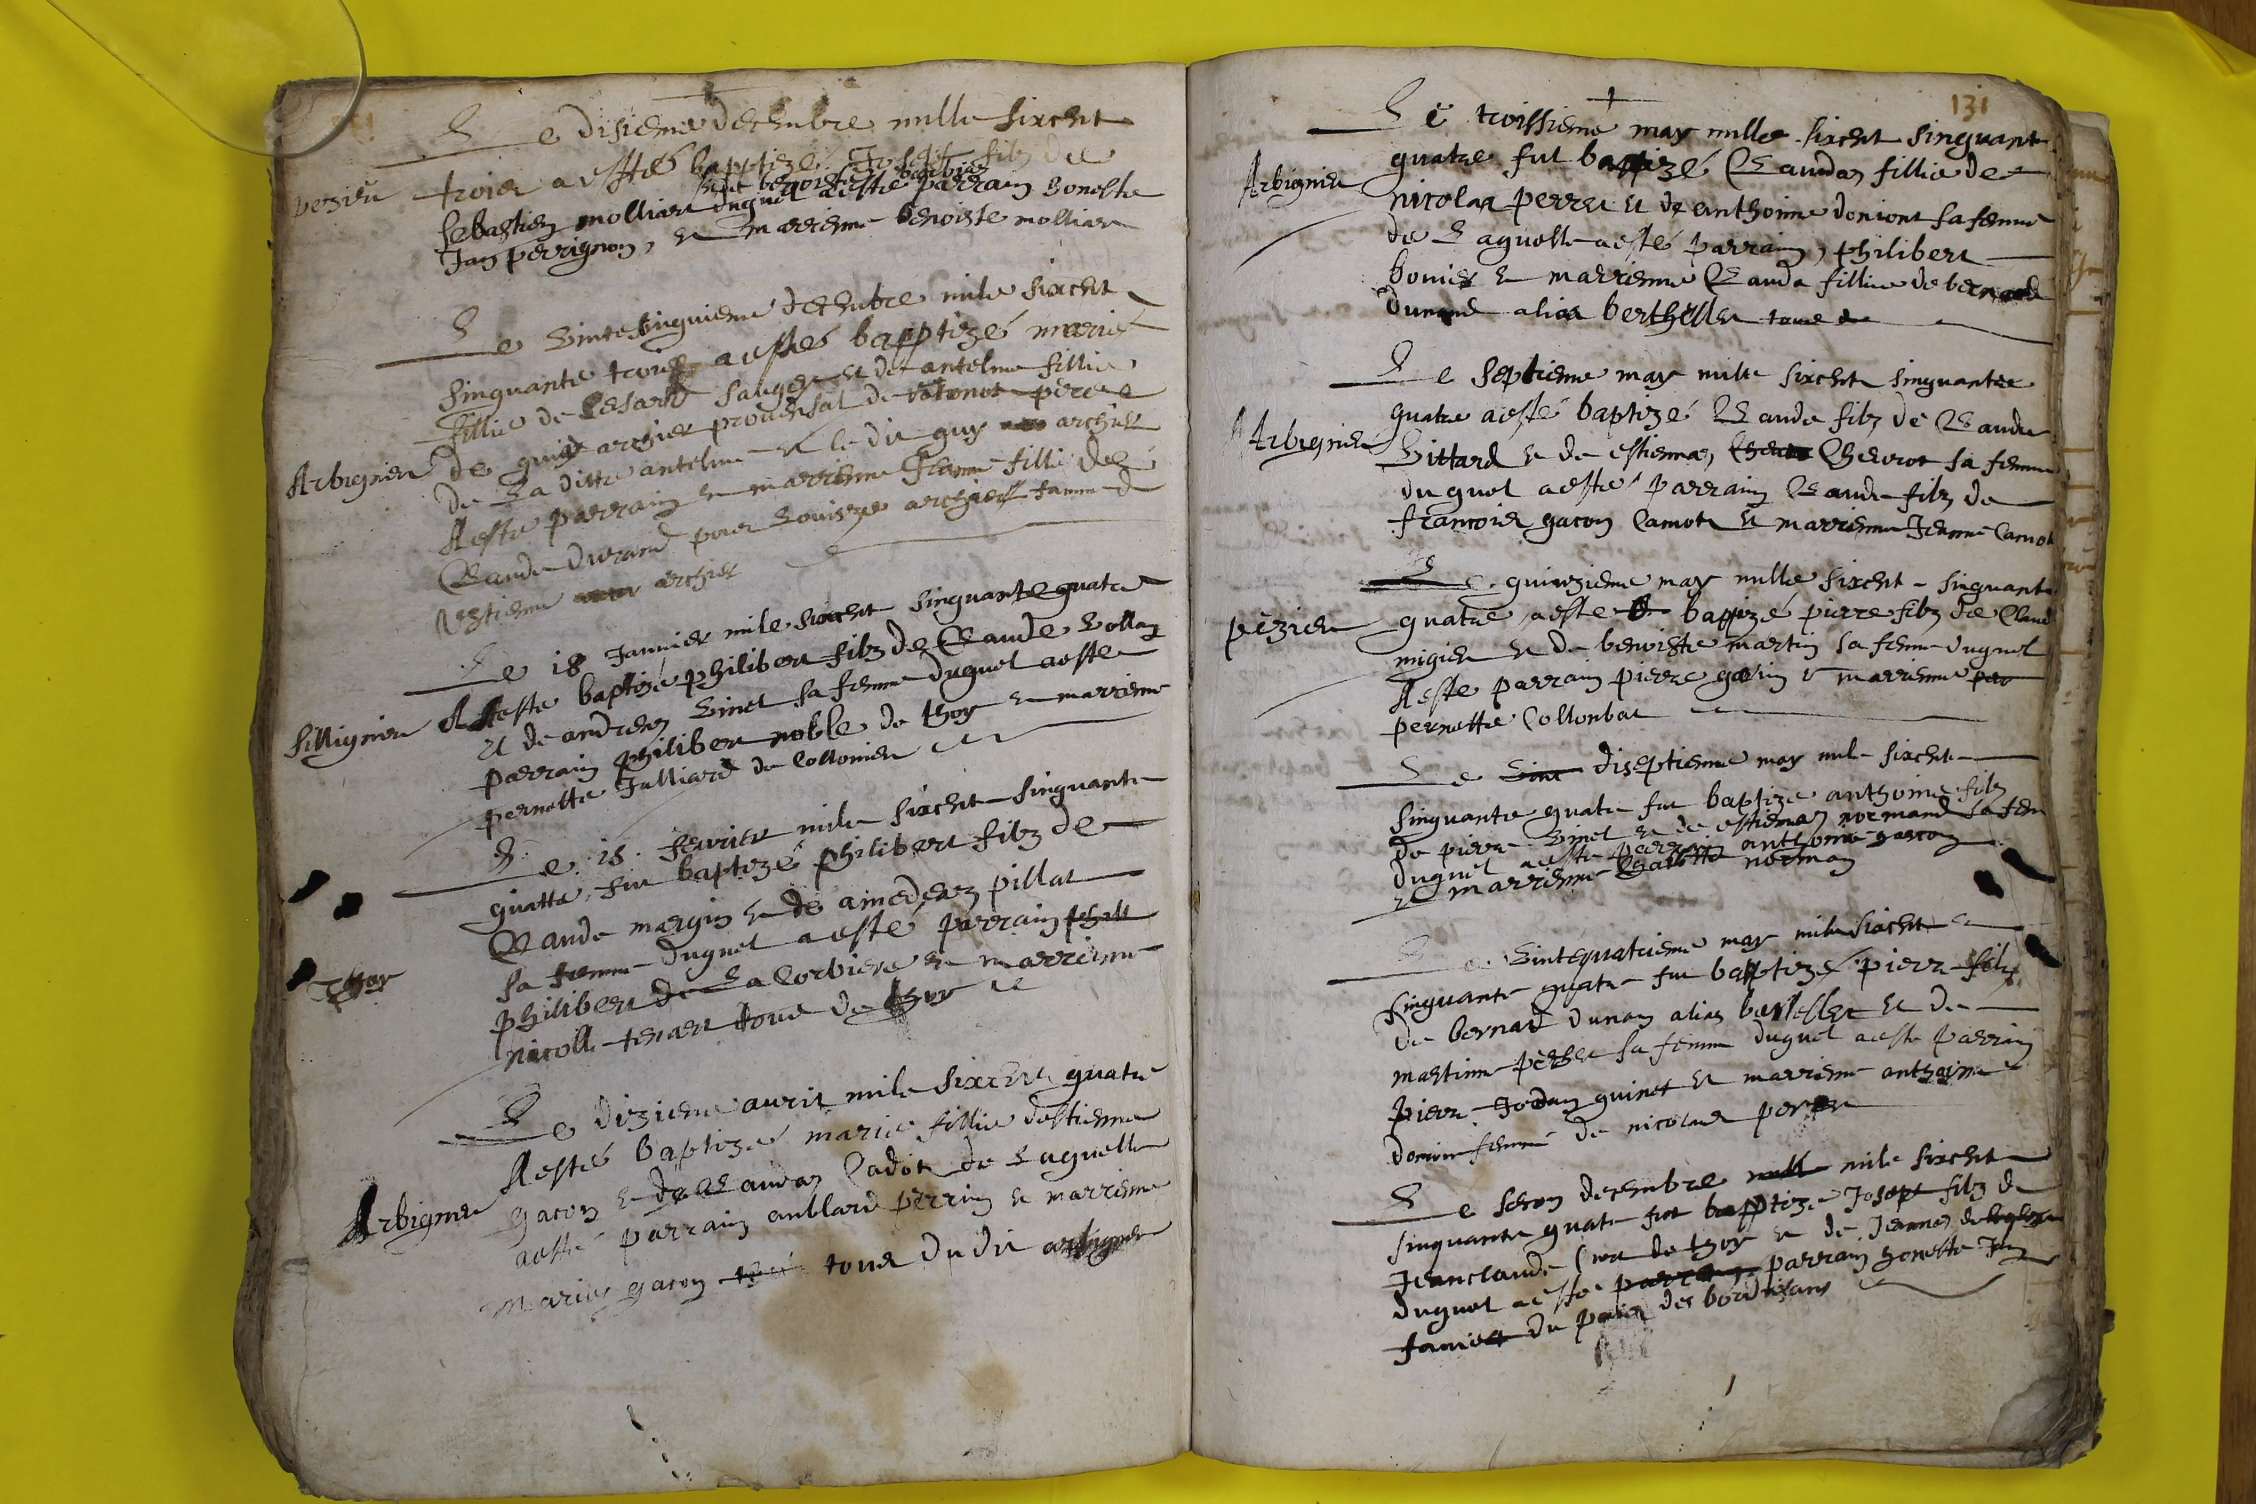 Le disieme decembre mille sixcent
pezieu troies a esté baptizé Joseph filz de
et de benoiste barbier
Sebastien molliare duquel a esté parrain honeste
Jan perrignon, et marrienne benoiste molliare
Le vintesinquieme decembre mile sixcent
singuante trois a estés baptizés marie
fillie de Cesard sauger et de antelme fillie
Arbignieu de guige archier provensal de pere
de la ditte antelme et le dit guy archier
A este parrain et marrienne Jeanne fille de
Claude Durand pour Louise archier famme d
estienne archier
Le 18 Janvier mile sixcent singuante quatre
sillignieu A este baptizé philibert filz de Claude Vollan
et de andrien vinet sa femme duquel a este
parrain philibert noble de thoy et marrienne
pernette Julliard de Collomieu
Le 15 fevrier mile sixcent singuante
quatte, fut baptizé philibert filz de
Claude margin et de amedean pillat
Thoy sa femme duquel a esté parrain phili
philibert de La Corbiere et marrienne
nicolle tenart tous de thoy
Le dizieme avril mile sixcent quatre
A estés baptizé marie fillie destienne
Arbignieu gacon et de Claudan Cadot de Laquelle
a esté parrain anblard perrin et marrienne
marie gacon tous du dit arbignieu
131
Le troissieme may mille sixcent singuante
Arbignieu quatre fut baptizé Claudan fillie de
nicolas perret et de anthoinne donjont sa femme
de Laquelle a esté parrain, philibert
bovier et marrienne Clauda fillie de bernard
Durand alias berthellet tous de
Le septieme may mille sixcent singuantee
quatre a esté baptizé Claude filz de Claude
Arbignieu Vittard et de estiennan, Chevrot sa femme
duquel a esté parrain Claude filz de
francois gacon Camot et marrienne Jeanne Camot
Le quinzieme may mille sixcent singuante
pezieu quatre a este baptizé pierre filz de Claud
migieu et de benoiste martin sa femme duquel
A este parrain pierre garin et marrienne per
pernette Collonbat
Le vint diseptieme may mile sixcent
singuante quatre fut baptize anthoine filz
de pierre vinet et de estiennan normand sa fem
duquel a este parrain anthoine gascon
et marrienne Claudine norman
Le vintequatrieme may mile sixcent
singuante quatre fut baptizé pierre filz
de bernard dunan alias bertellet et de
martinne perret sa femme duquel a este parrain
pierre Jordan guinet et marrienne anthoinne
donion femme de nicolas perret
Le segon decembre mill mile sixcent
singuante quatre fut baptize Josept filz de
Jeanclaude de thoy et de Jeannan
duquel a este parrain parrain honeste Jan
Janiert du paiis des bordisans